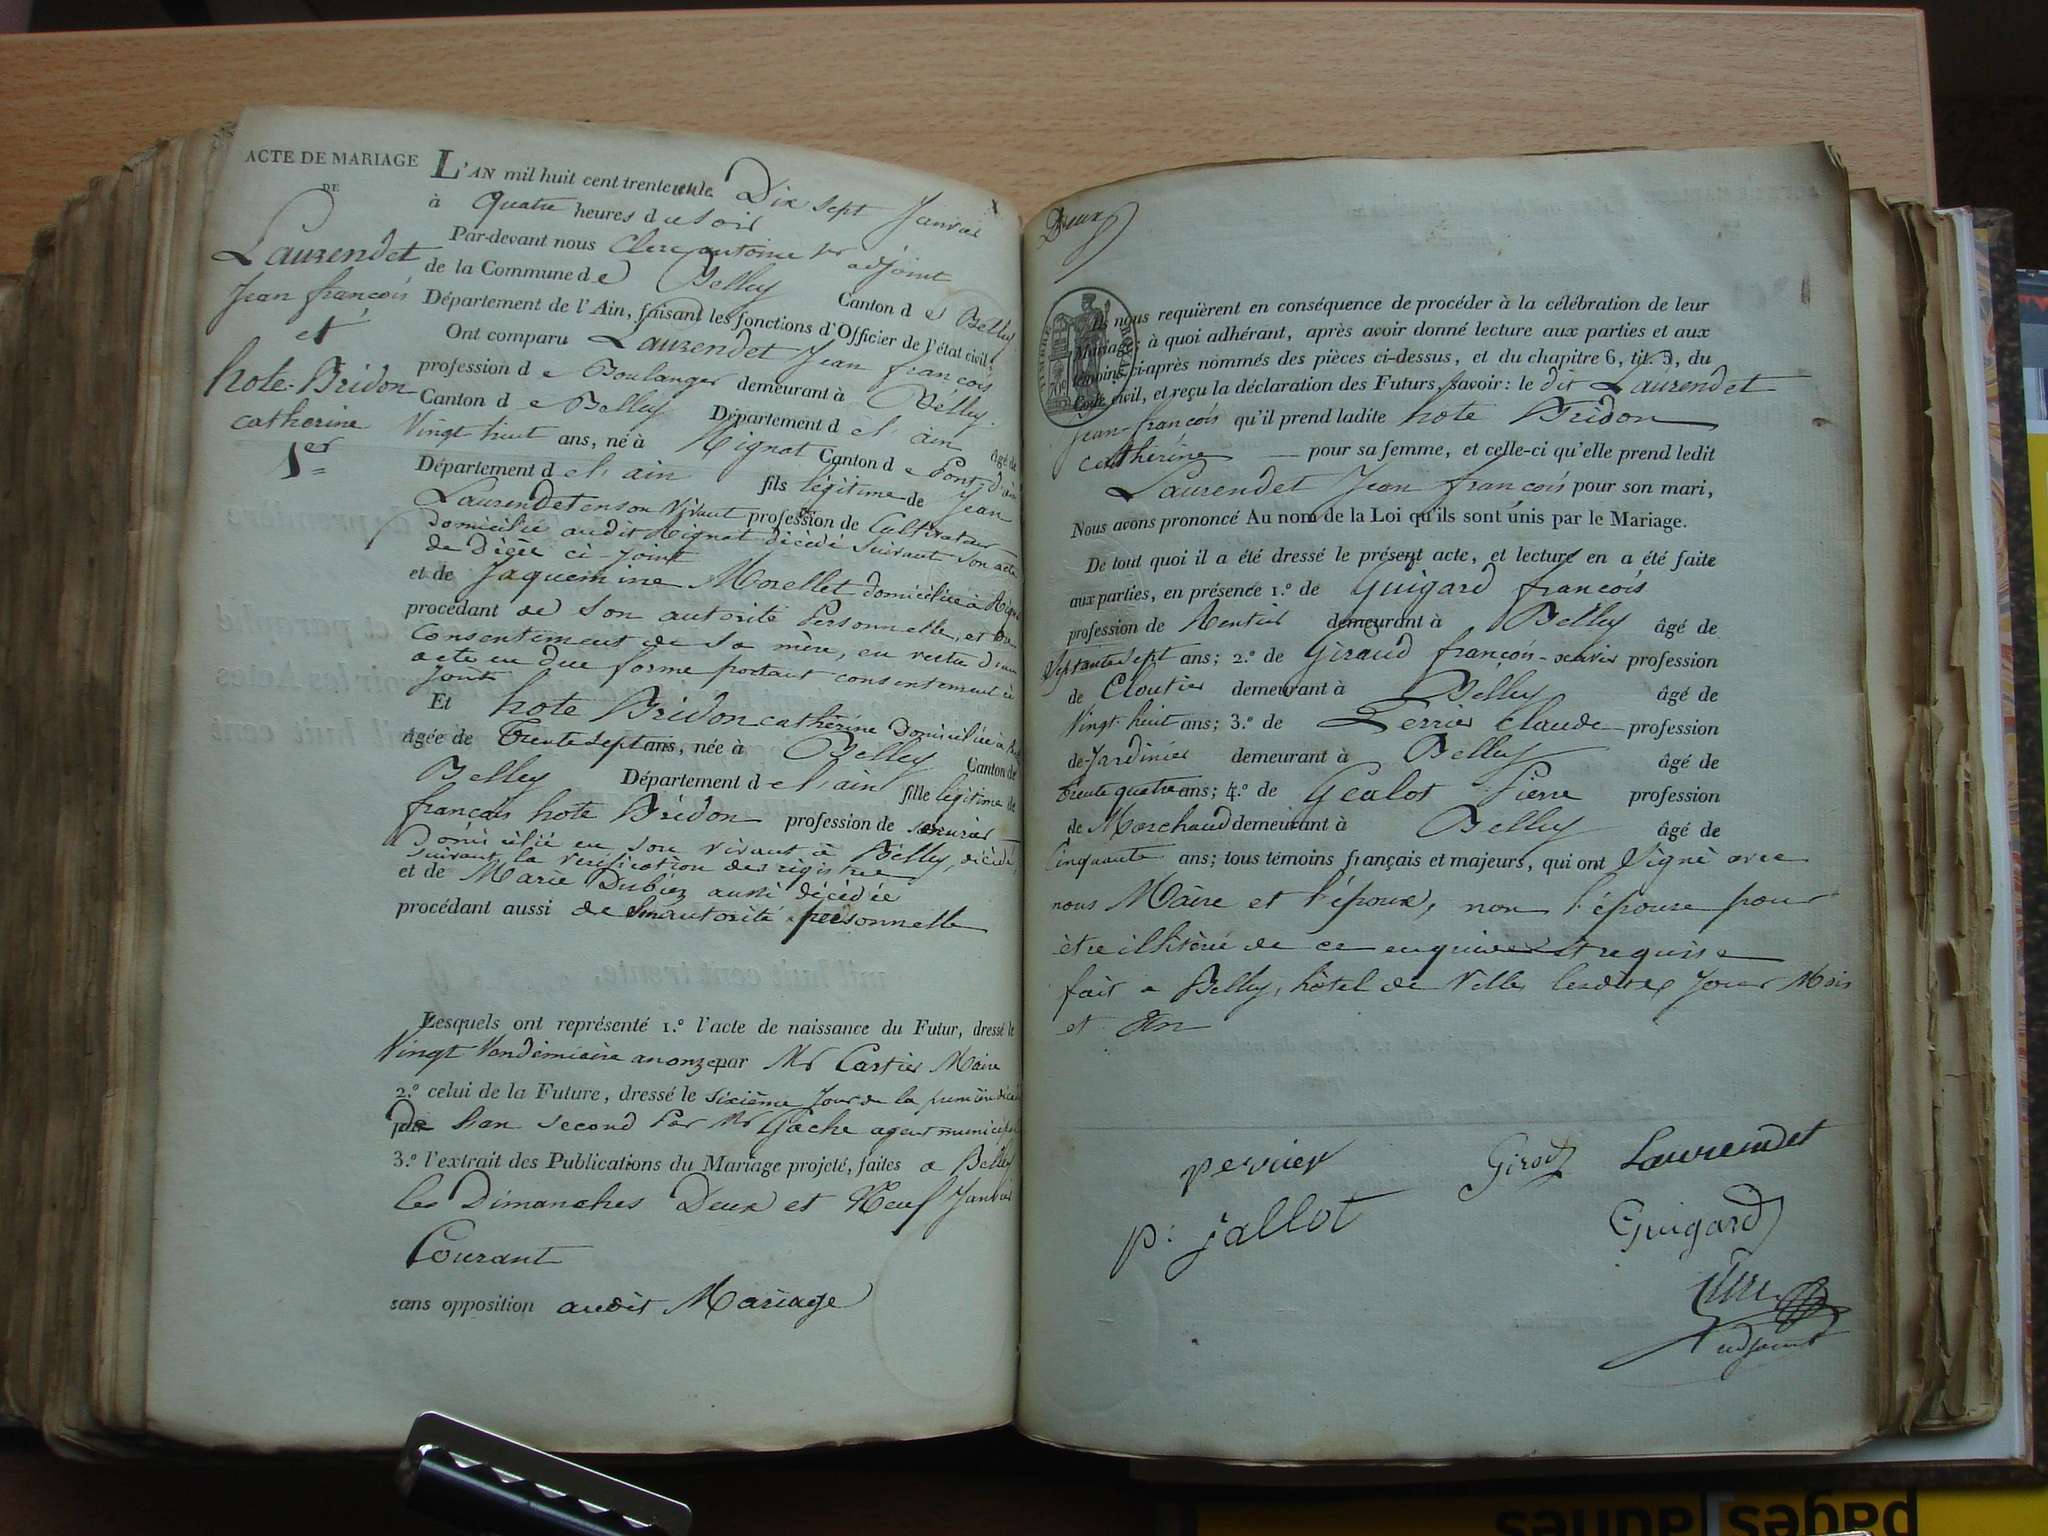 ACTE DE MARIAGE
DE
Laurendet
Jean françois
et
hote-Bridon
catherine
1er
L'AN mil huit cent trente un le Dix sept Janvier
à quatre heures du soir
Par-devant nous Clerc antoine 1er adjoint
de la Commune de Belley Canton de Belley
Département de l'Ain, faisant les fonctions d'Officier de l'état civil;
Ont comparu Laurendet Jean françois
profession de Boulanger demeurant à Belley
Canton de Belley Département de l'ain âgé de
Vingt huit ans, né à Rignat Canton de Pont d'ain
Département de l'ain fils légitime de Jean
Laurendet en son Vivant profession de Cultivateur
domicilié audit Rignat décédé suivant son acte
de décès ci-joint
et de Jaquemine Morellet domiciliée à Rignat
procédant de son autorité Personnelle, et du
Consentement de sa mère, en vertu d'un
acte en due forme portant consentement ci
joint
Et hote Bridon catherine Domiciliée à
âgée de Trente sept ans, née à Belley Canton de
Belley Département de l'ain fille légitime de
françois hote Bridon profession de serrurier
Domicilié en son vivant à Belley, décédé
suivant la verification des registres
et de Marie Dubiez aussi décédée
procédant aussi de son autorité personnelle
Lesquels ont représenté 1.º l'acte de naissance du Futur, dressé le
Vingt Vendémiaire an onze par Mr Cartier Maire
2.º celui de la Future, dressé le sixième Jour de la première décade
de l'an second Par Mr Gache agent municipal
3.º l'extrait des Publications du Mariage projeté, faites a Belley
les Dimanches Deux et Neuf Janvier
Courant
sans opposition audit Mariage
Deux
TIMBRE ROYAL
70c
Ils nous requièrent en conséquence de procéder à la célébration de leur
Mariage; à quoi adhérant, après avoir donné lecture aux parties et aux
témoins ci-après nommés des pièces ci-dessus, et du chapitre 6, tit. 5, du
Code civil, et reçu la déclaration des Futurs, savoir: le dit Laurendet
Jean-françois qu'il prend ladite hote Bridon
catherine pour sa femme, et celle-ci qu'elle prend ledit
Laurendet Jean françois pour son mari,
Nous avons prononcé Au nom de la Loi qu'ils sont unis par le Mariage.
De tout quoi il a été dressé le présent acte, et lecture en a été faite
aux parties, en présence 1.º de Guigard françois
profession de Rentier demeurant à Belley âgé de
Septante sept ans; 2.º de Giraud françois-xavier profession
de Cloutier demeurant à Belley âgé de
Vingt-huit ans; 3.º de Perrier Claude profession
de Jardinier demeurant à Belley âgé de
Trente quatre ans; 4.º de Gealot Pierre profession
de Marchand demeurant à Belley âgé de
Cinquante ans; tous témoins français et majeurs, qui ont Signé avec
nous Maire et l'époux, non l'épouse pour
être illitérée de ce enquise et requise
fait a Belley, hôtel de Ville, lesdits Jour Mois
et An
perrier Girod Laurendet
p: jallot Guigard
Clerc
adjoint
pages jaunes